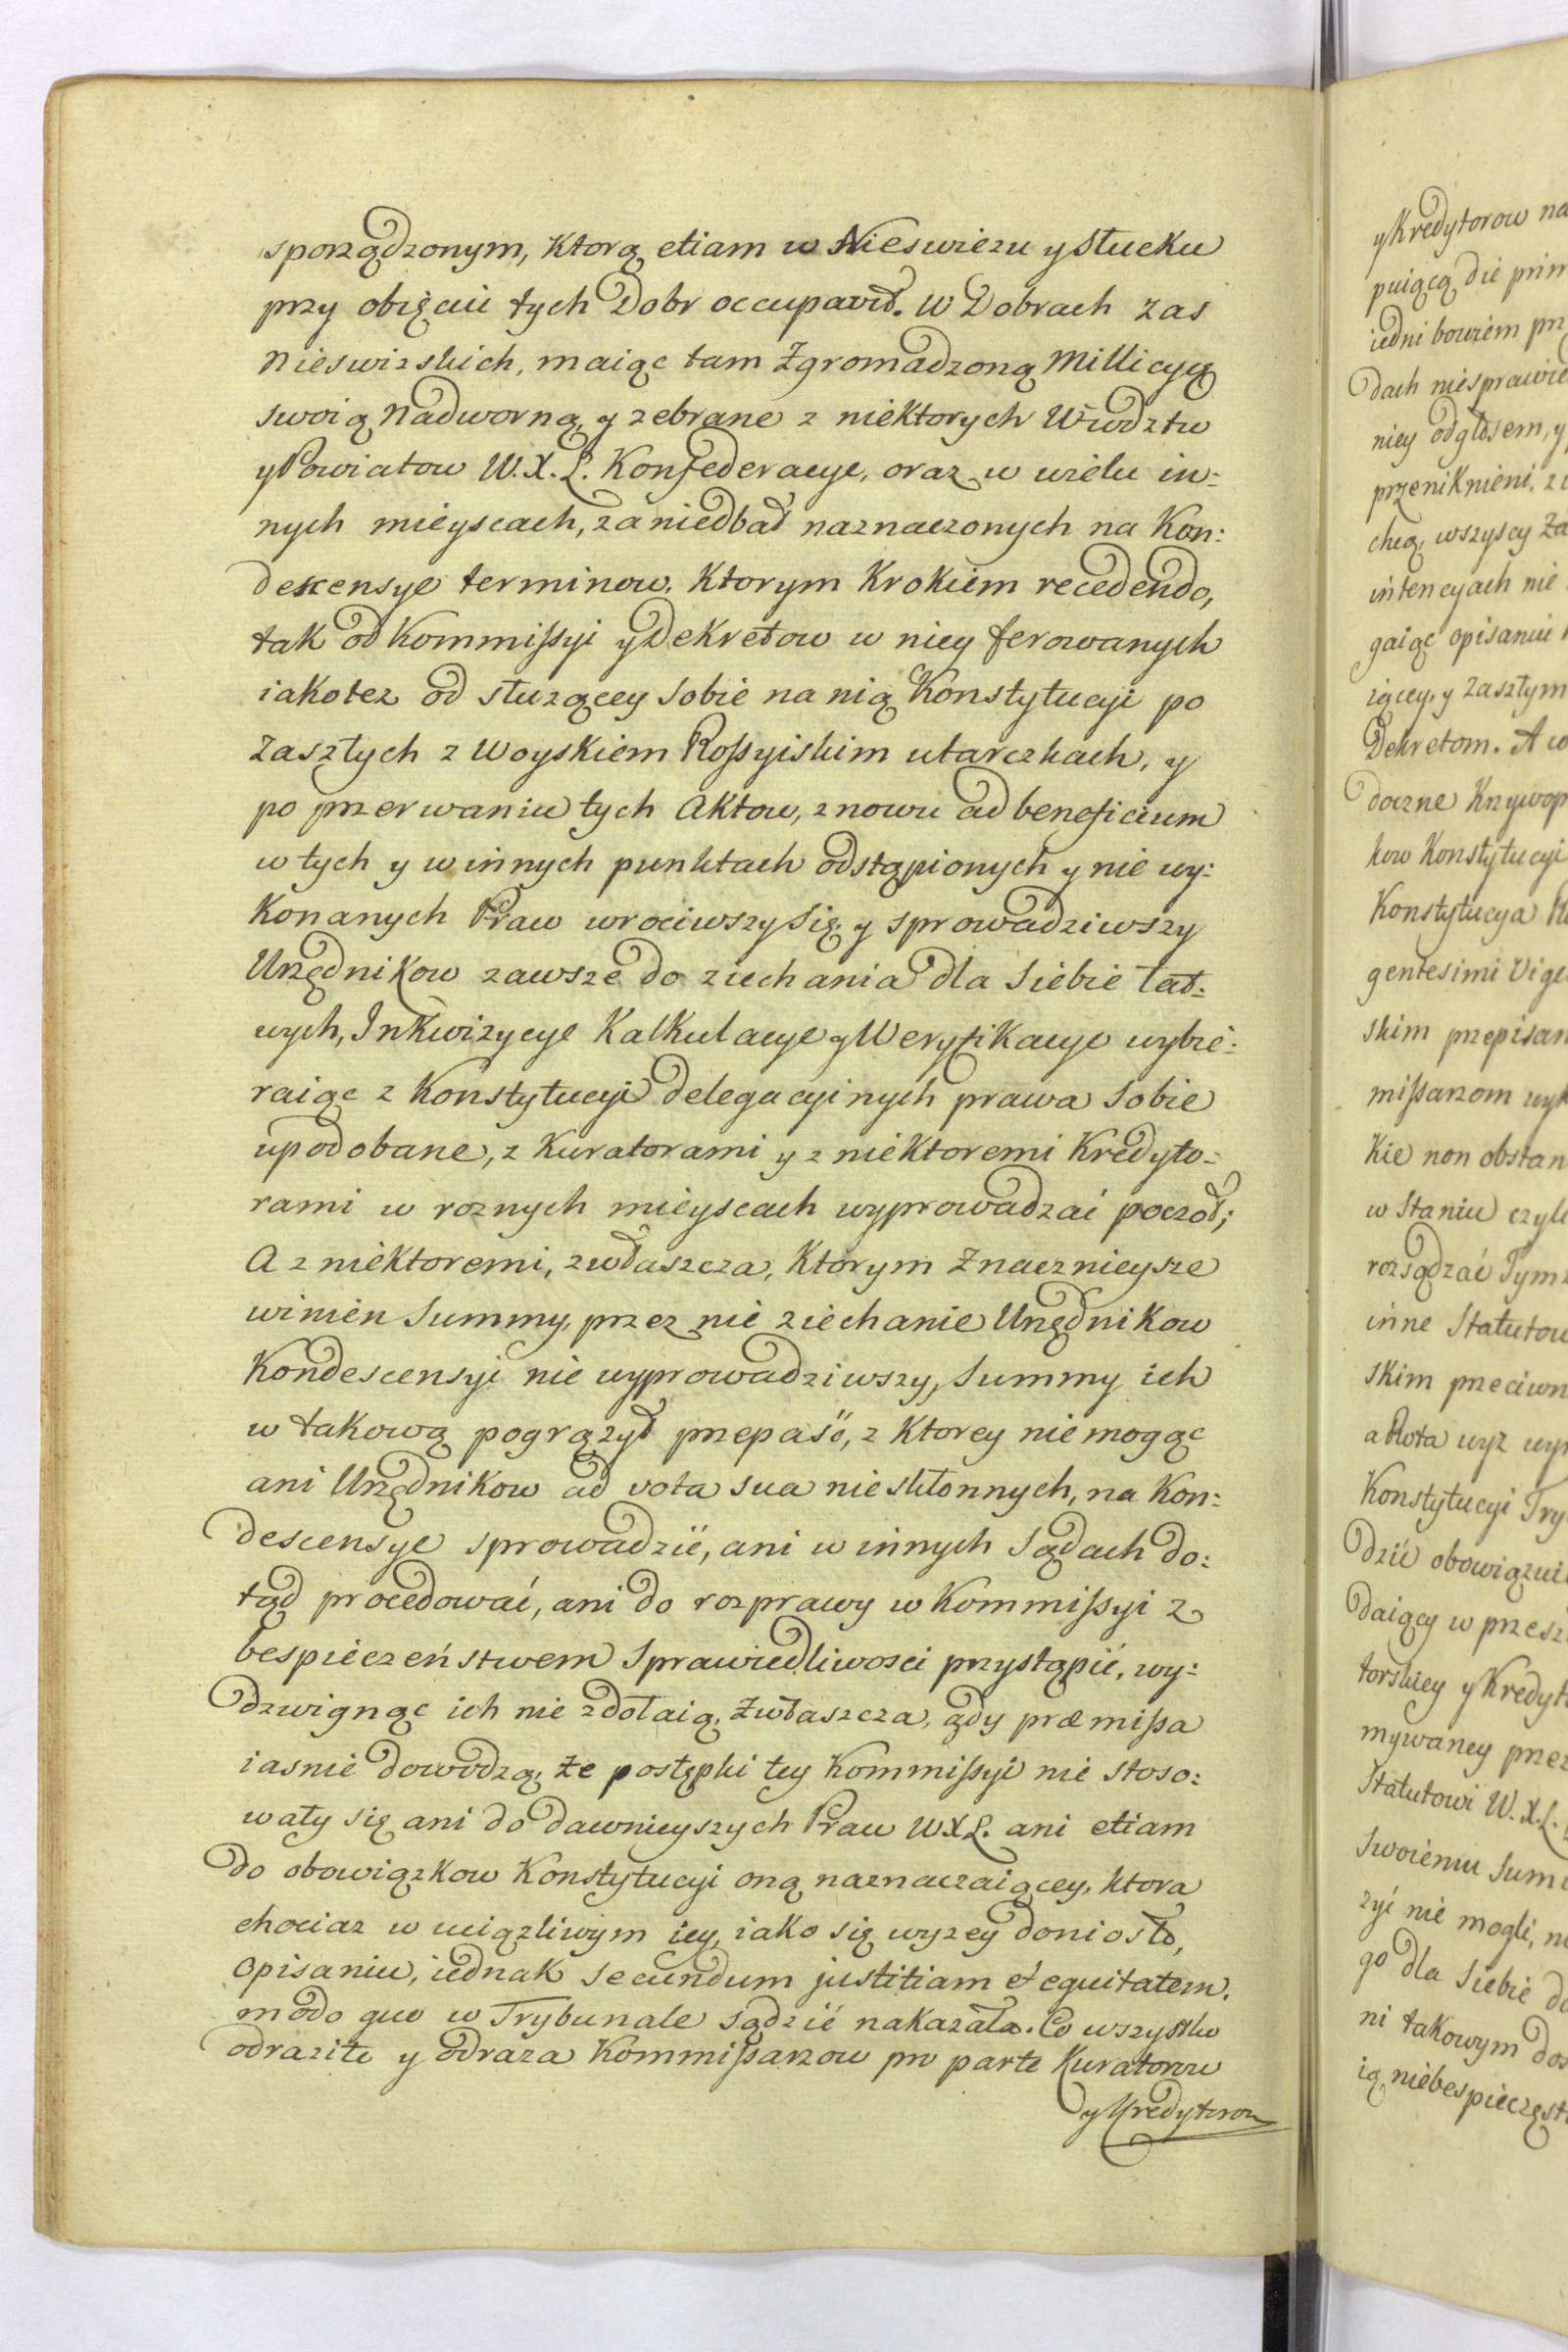 sporządzonym, Ktorą etiam w Nieswiezu y Słucku
przy obięciu tych Dobr occupavit. W Dobrach zas
Nieswizskich, maiąc tam Zgromadzoną Millicyą
swoią Nadworną, y zebrane z niektorych Wwdztw
y Powiatow W. X. L. Konfederacye, oraz w wielu in:
nych mieyscach, zaniedbał naznaczonych na Kon:
descensye terminow. Ktorym Krokiem recedendo,
tak od Kommissyi y Dekretow w niey ferowanych
iakotez od słuzącey Sobie na nią Konstytucyi po
Zaszłych z Woyskiem Rossyiskim utarczkach, y
po przerwaniu tych Aktow, znowu ad beneficium
w tych y w innych punktach odstąpionych y nie wy:
Konanych Praw wrociwszy Się, y sprowadziwszy
Urzędnikow zawsze do ziechania dla Siebie łat:
wych, Inkwizycye Kalkulacye y Weryfikacye wybie:
raiąc z Konstytucyi Delegacyinych prawa Sobie
upodobane, z Kuratorami y z niektoremi Kredyto:
rami w roznych mieyscach wyprowadzać począł;
A z niektoremi, zwłaszcza, Ktorym Znacznieysze
winien Summy, przez nie ziechanie Urzędnikow
Kondescensyi nie wyprowadziwszy, Summy ich
w takową pogrązył przepaść, z Ktorey nie mogąc
ani Urzędnikow ad vota sua niesklonnych, na Kon:
descensye sprowadzić, ani w innych Sądach do:
tąd procedować, ani do rozprawy w Kommissyi z
bespieczeństwem Sprawiedliwosci przystąpić, wy:
dzwignąc ich nie zdołaią. Zwłaszcza, gdy præmissa
iasnie dowodzą, ze postępki tey Kommissyi nie stoso:
wały się ani do dawnieyszych Praw W X L. ani etiam
do obowiązkow Konstytucyi oną naznaczaiącey, ktora
chociaz w uciązliwym iey, iako się wyzey doniosło,
Opisaniu, iednak secundum justitiam et equitatem,
modo quo w Trybunale sądzić nakazała. Co wszystko
odraziło y odraza Kommissarzow pro parte Kuratorow
y Kredytorow
y Kredytorow na
puiącą die prim
iedni bowiem prz
dach niesprawie
niey odgłosem, y
przeniknieni, z i
chcą, wszyscy Za
intencyach nie
gaiąc opisaniu
iącey, y Zaszłym
Dekretom. A w
doczne Krzywop
kow Konstytucyi
Konstytucya
gentesimi Vige
skim przepisan
missarzom wyk
Kie non obstan
w Staniu czyli
rozsądzać Tym
inne Statutow
skim przeciwn
a Rota wyz wyr
Konstytucyi Try
dzić obowiązui
daiący w przesz
torskiey y Kredyt
mywaney prze
Statutowi W. X. L.
Swoiemu Sumi
zyć nie mogli, n
go dla Siebie do
ni takowym dos
ią niebespieczęst